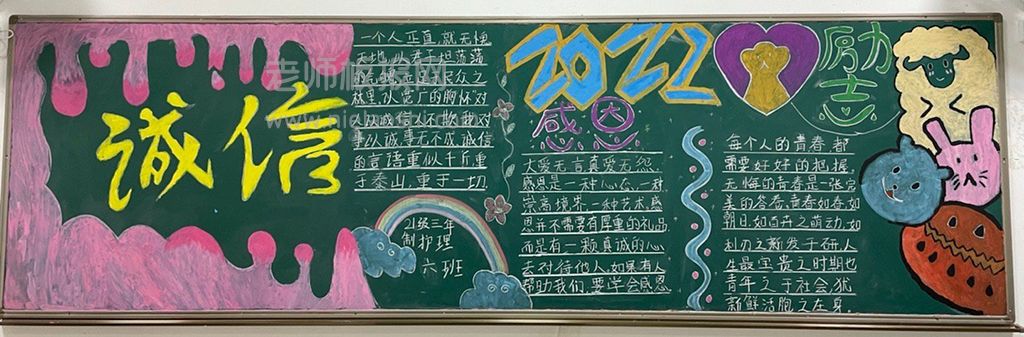 诚信
一个人正直,就无愧
天地,从
林里,以宽广的胸怀对
事以诚,事无不成,诚信
的言语重似千斤重
于泰山,重于一切.
21级三年
制护理
六班
2022
感恩
大爱无言真爱无怨.
感恩是一种心态,一种
崇高境界,一种艺术,感
恩并不需要有厚重的礼品
而是有一颗真诚的心
去对待他人,如果有人
帮助我们,要学会感恩
励志
每个人的青春,都
需要好好的把握,
无悔的青春是一张完
美的答卷,青春如春如
朝日,如百卉之萌动,如
利刃之新发于硎,人
生最宝贵之时期也
青年之于社会,犹
新鲜活胞之在身.
老师板报网